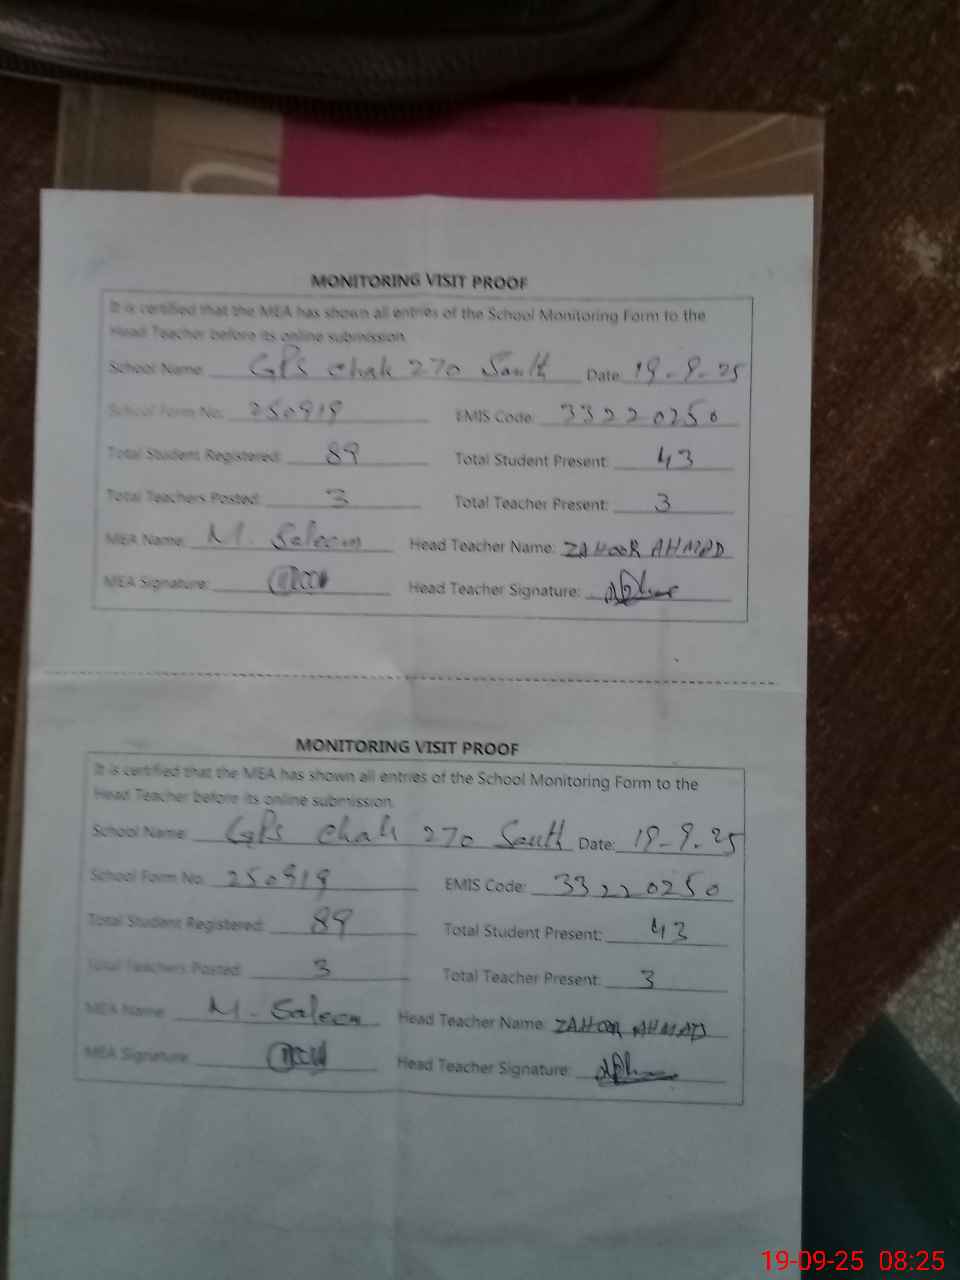 MONITORING VISIT PROOF
It is certified that the MEA has shown all entries of the School Monitoring Form to the
Head Teacher before its online submission.
School Name: GPS Chak 270 South Date: 19-9-25
School Form No: 250919 EMIS Code: 33220250
Total Student Registered: 89 Total Student Present: 43
Total Teachers Posted: 3 Total Teacher Present: 3
MEA Name: M. Saleem Head Teacher Name: ZAHOOR AHMAD
MEA Signature: Head Teacher Signature:
MONITORING VISIT PROOF
It is certified that the MEA has shown all entries of the School Monitoring Form to the
Head Teacher before its online submission.
School Name: GPS Chak 270 South Date: 19-9-25
School Form No: 250919 EMIS Code: 33220250
Total Student Registered: 89 Total Student Present: 43
Total Teachers Posted: 3 Total Teacher Present: 3
MEA Name: M. Saleem Head Teacher Name: ZAHOOR AHMAD
MEA Signature: Head Teacher Signature:
19-09-25 08:25